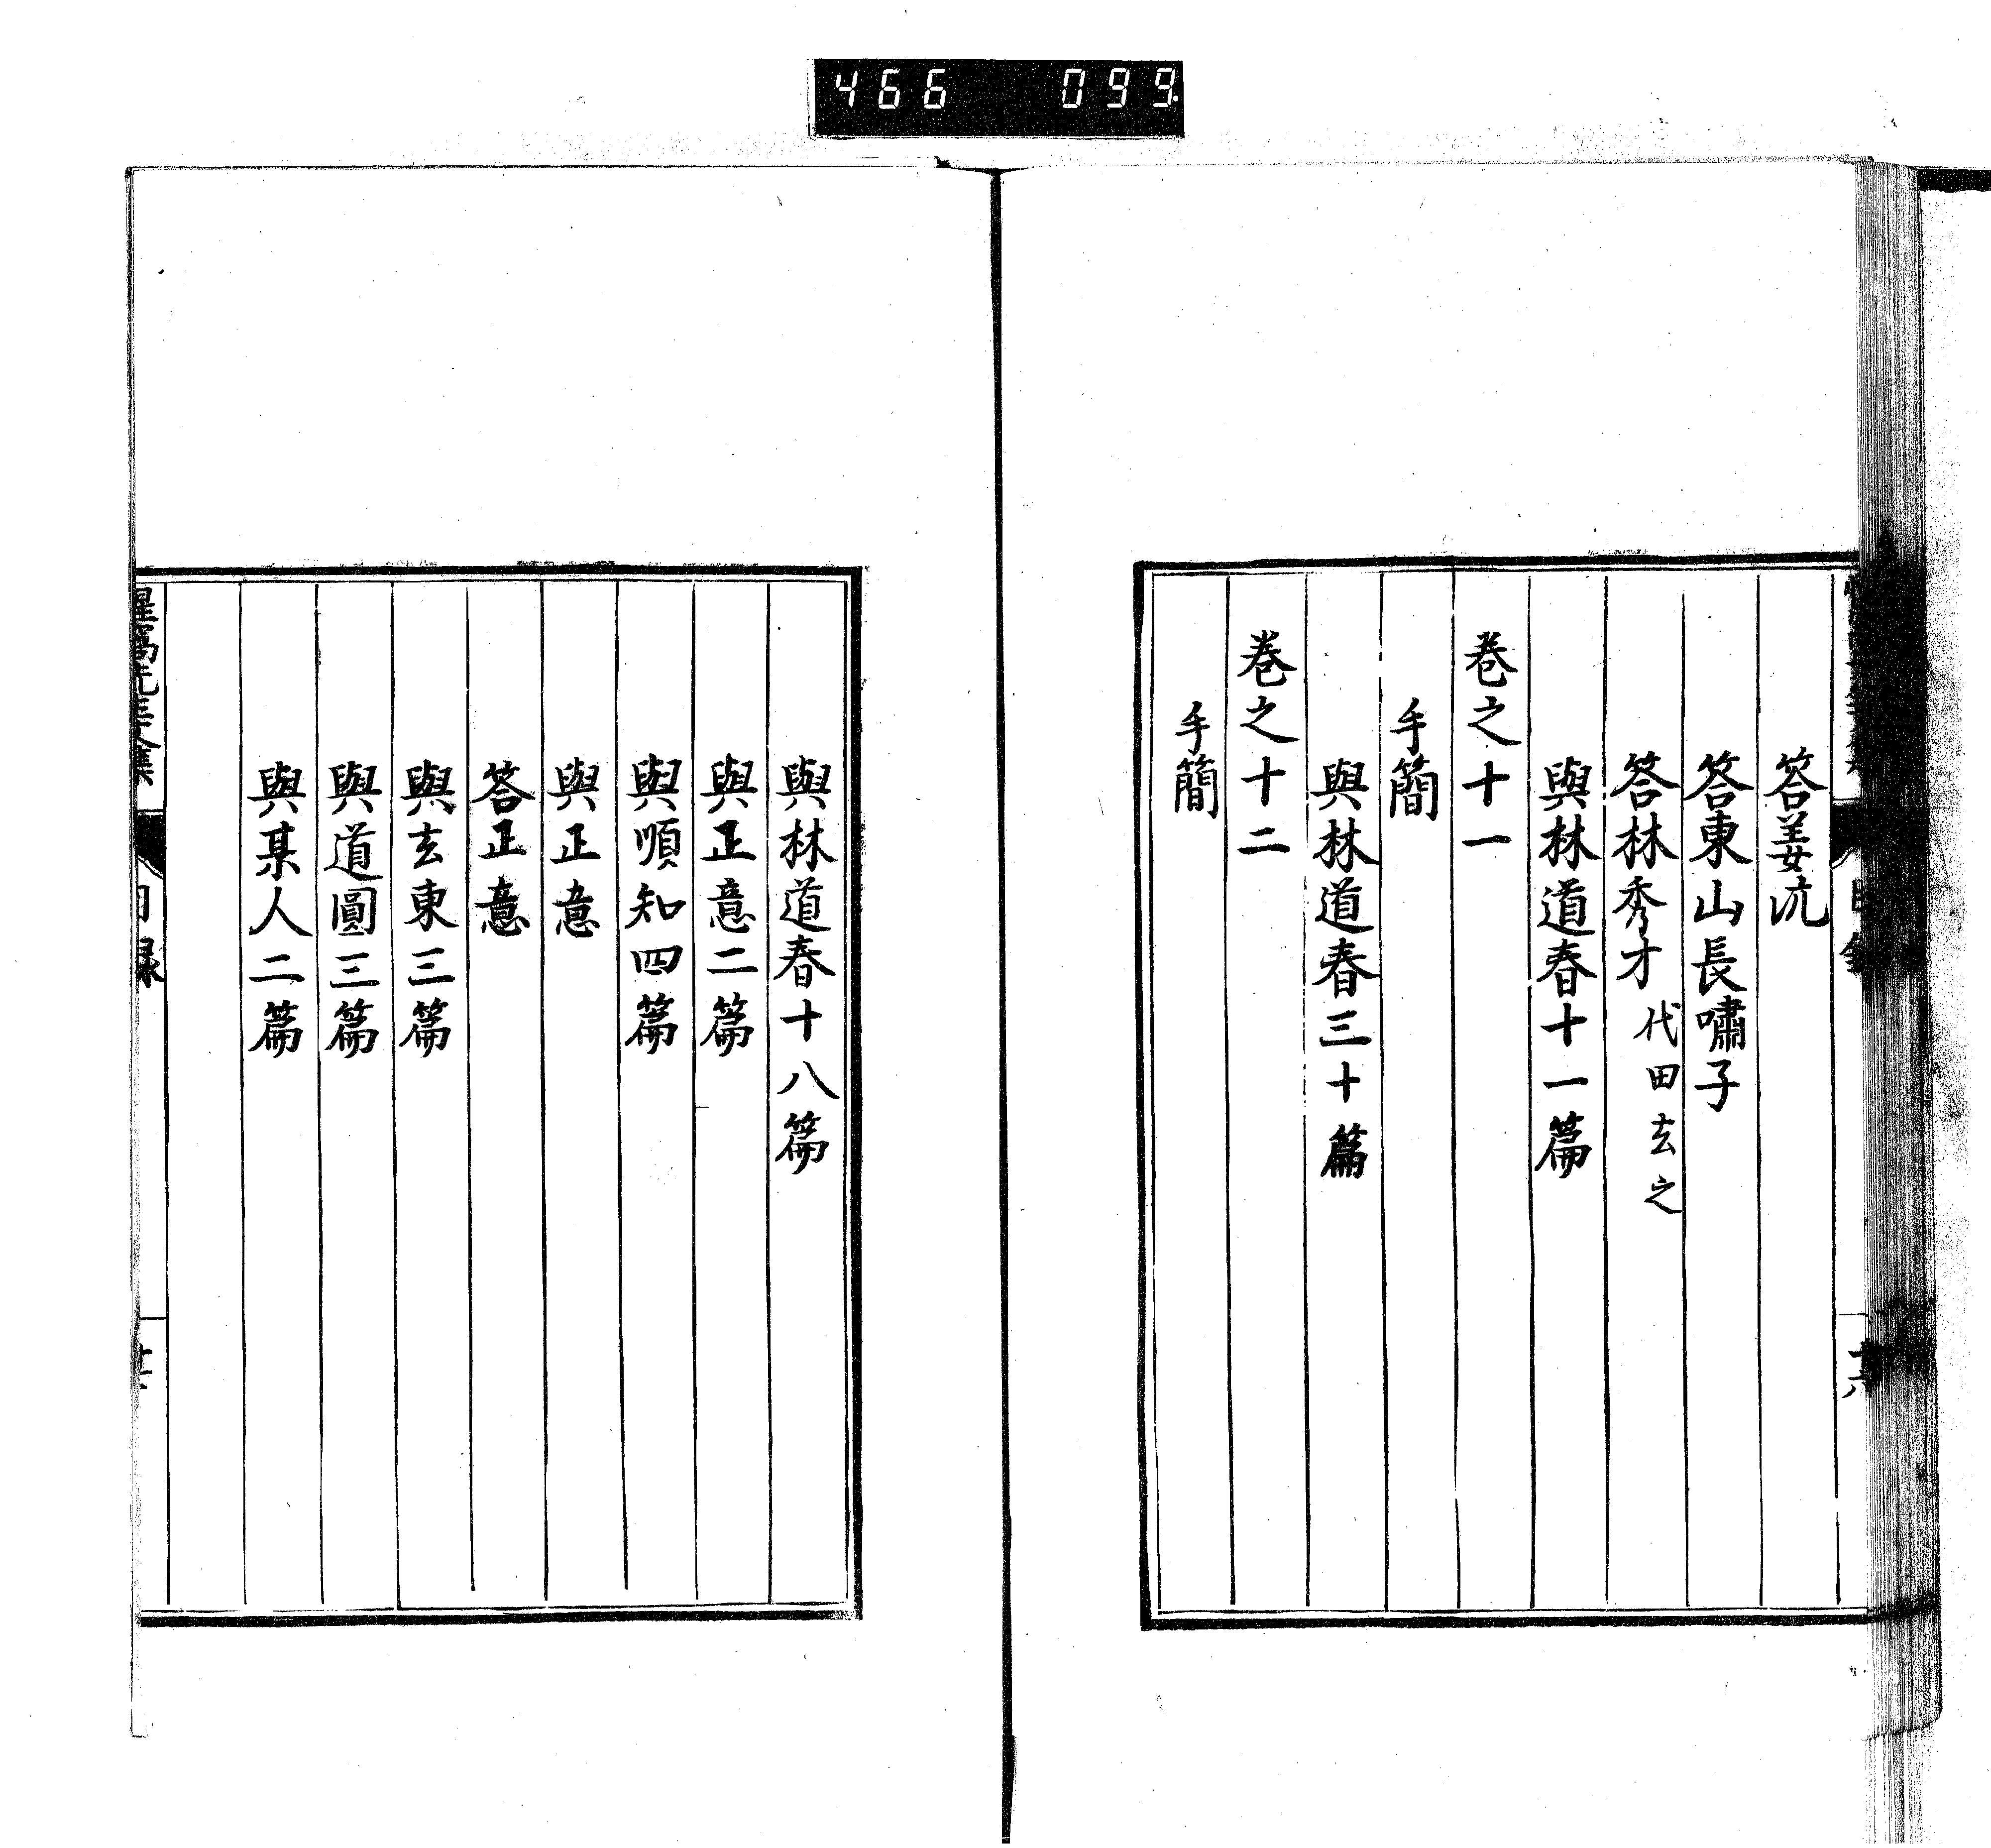 466 099
答姜沆
答東山長嘯子
答林秀才 代田玄之
與林道春十一篇
巻之十一
手簡
與林道春三十篇
巻之十二
手簡
與林道春十八篇
與正意二篇
與順知四篇
與正意
答正意
與玄東三篇
與道圓三篇
與某人二篇